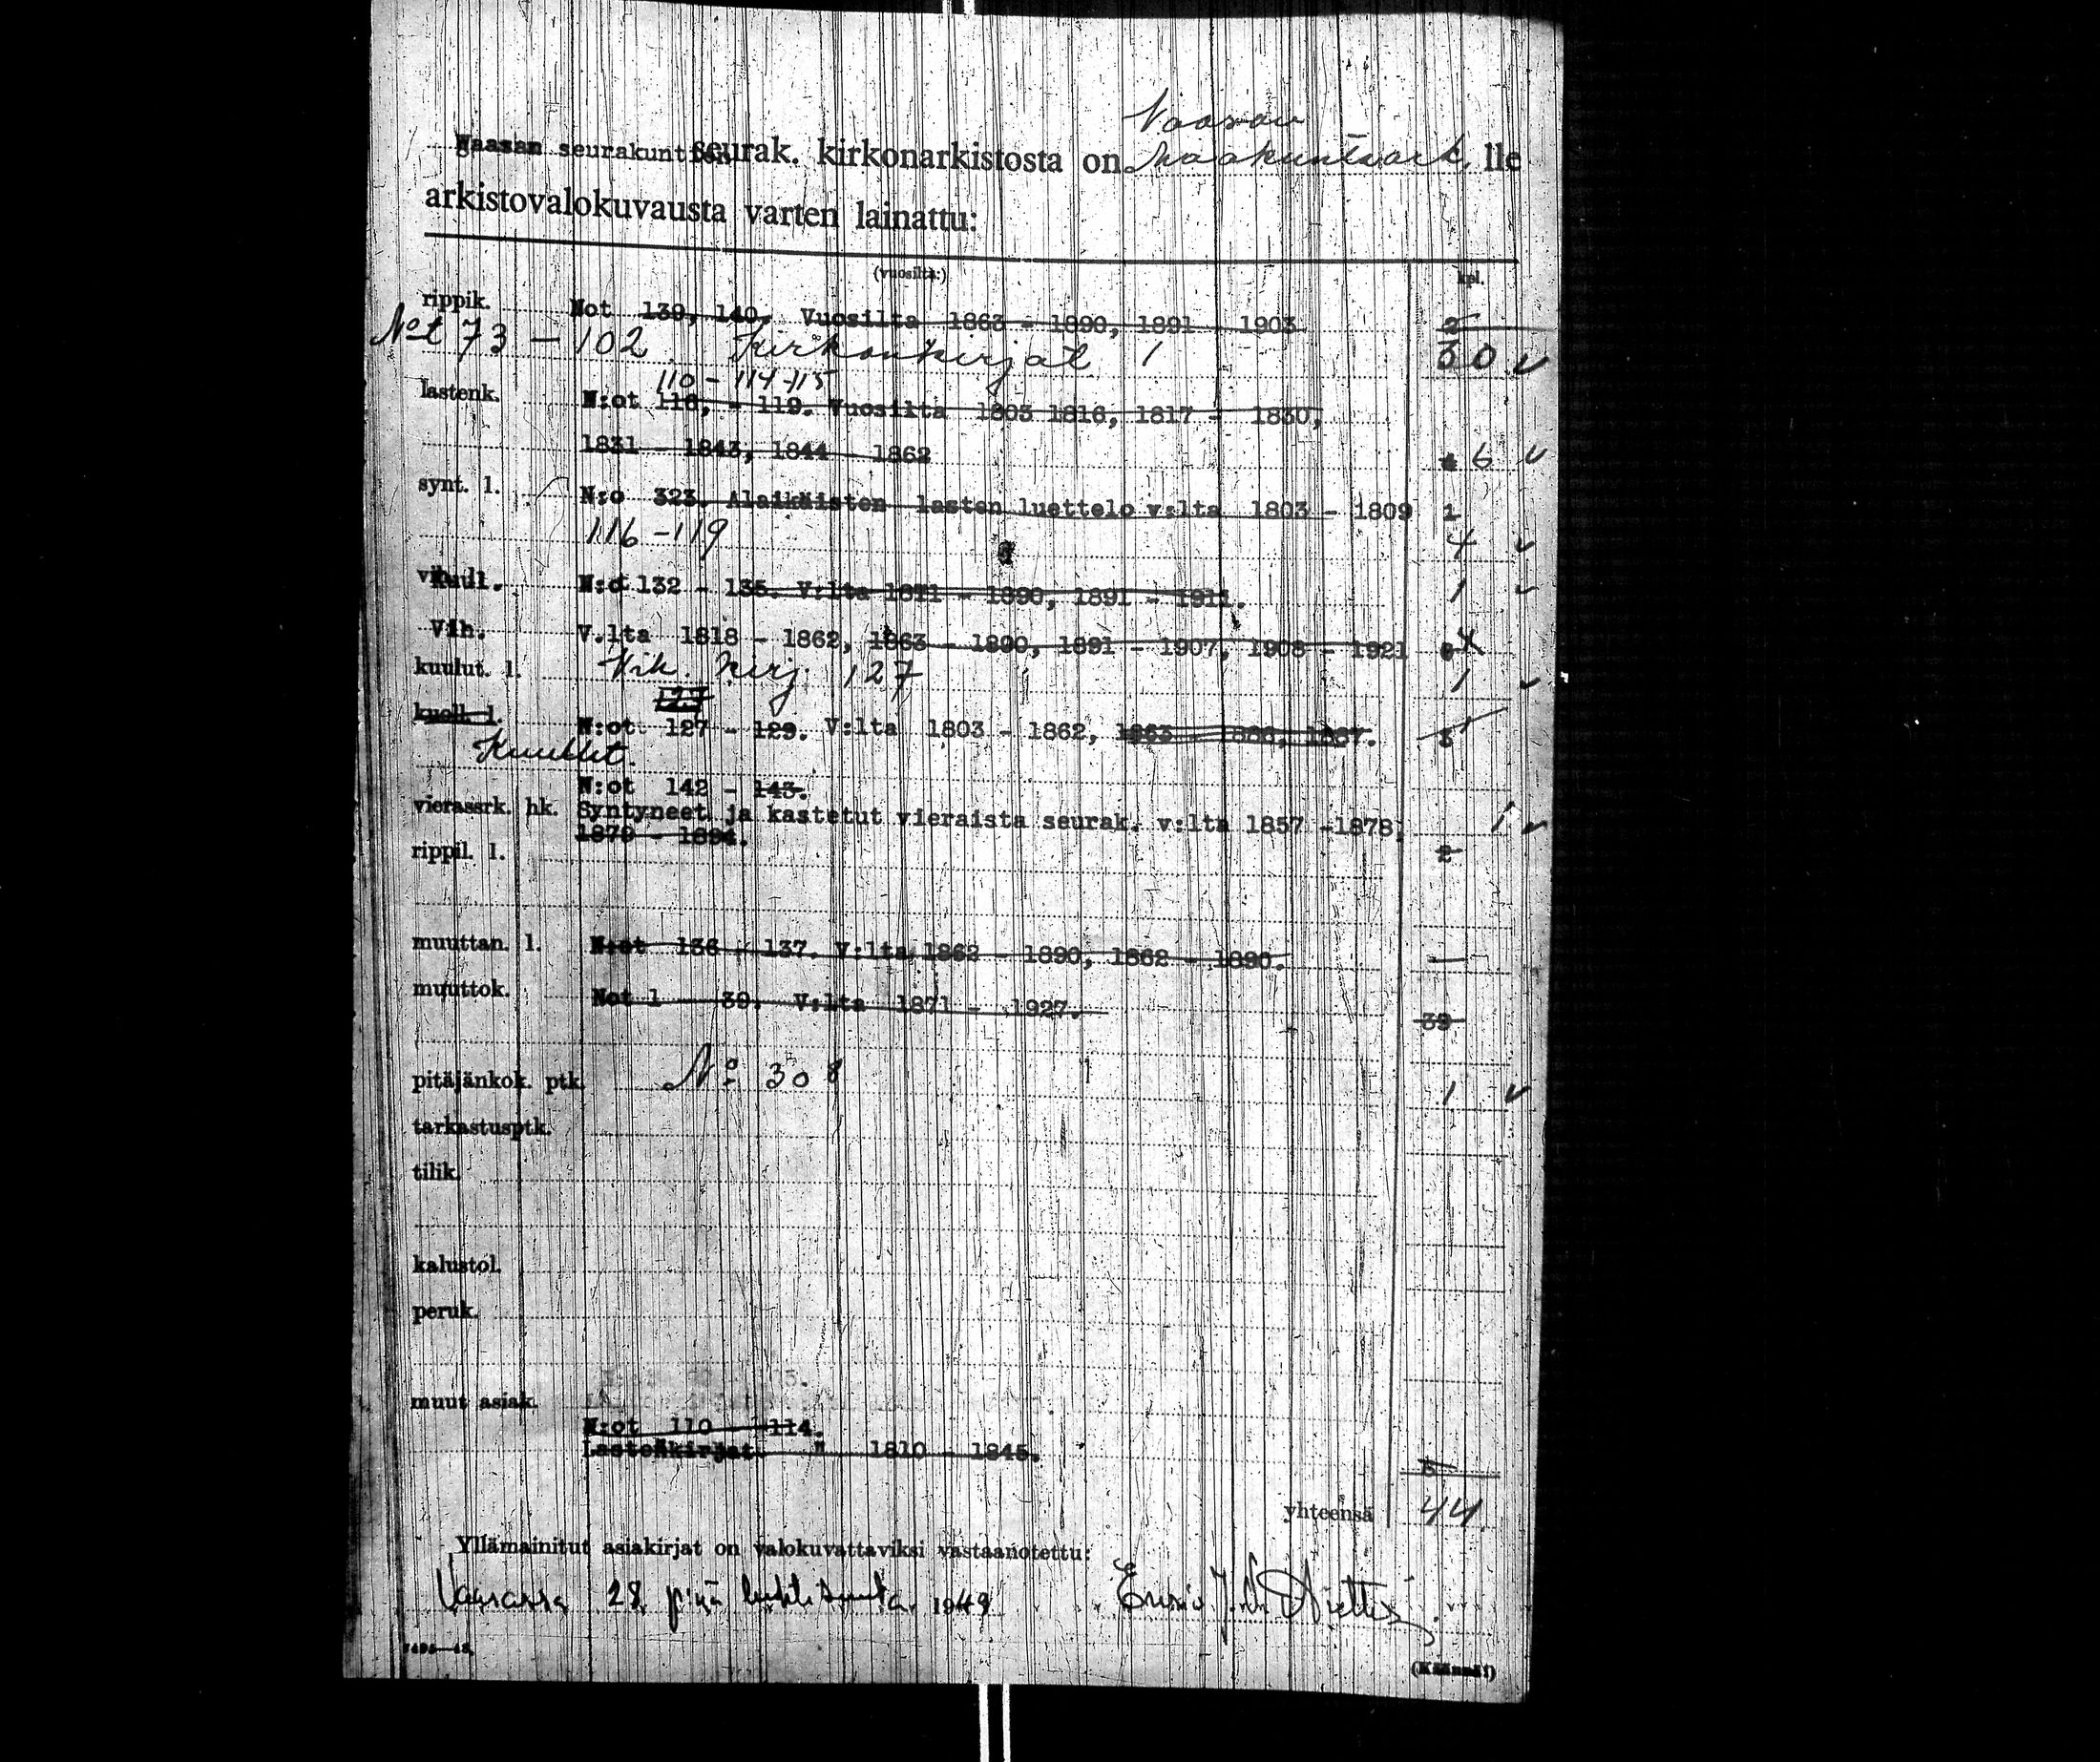 Vaasan
Waasan seurakuntien seurak. kirkonarkistosta on Maakuntaark. lle
arkistovalokuvausta varten lainattu:
(vuosilta:) kpl.
rippik. Not 139, 140, Vuosilta 1863 - 1890, 1891 - 1903 2
Not 73 - 102 Kirkonkirjat 30 v
110 - 114-115
lastenk. N:ot 116, - 119. Vuosilta 1803 1816, 1817 - 1830,
1831 - 1843, 1844 - 1862 6 v
synt. l. N:o 323. Alaikäisten lasten luettelo v:lta 1803 - 1809 1
116 - 119 4 v
N:o 132 - 135. V:lta 1871 - 1890, 1891 - 1911. 1 v
Vih. V.lta 1818 - 1862, 1863 - 1890, 1891 - 1907, 1908 - 1921
kuulut. l. Vih. kirj. 127 1 v
kuoll. l. N:ot 127 - 129. V:lta 1803 - 1862, 1863 - 1886, 1887. 3
Kuullut.
N:ot 142 - 143.
vierassrk. hk. Syntyneet ja kastetut vieraista seurak. v:lta 1857 -1878, 1 v
1879 - 1894. 2
rippil. l.
muuttan. l. N:ot 136 - 137. V:lta 1862 - 1890, 1862 - 1890.
muuttok. Not 1 - 39. V:lta 1871 - 1927. 39
pitäjänkok. ptk. No 308 1 v
tarkastusptk.
tilik.
kalustol.
peruk.
muut asiak.
N:ot 110 - 114.
Lastenkirjat " 1810 - 1845. 5
yhteensä 44
Yllämainitut asiakirjat on valokuvattaviksi vastaanotettu:
Vaasassa 28 p:nä huhtikuuta 1949
(Käännä!)